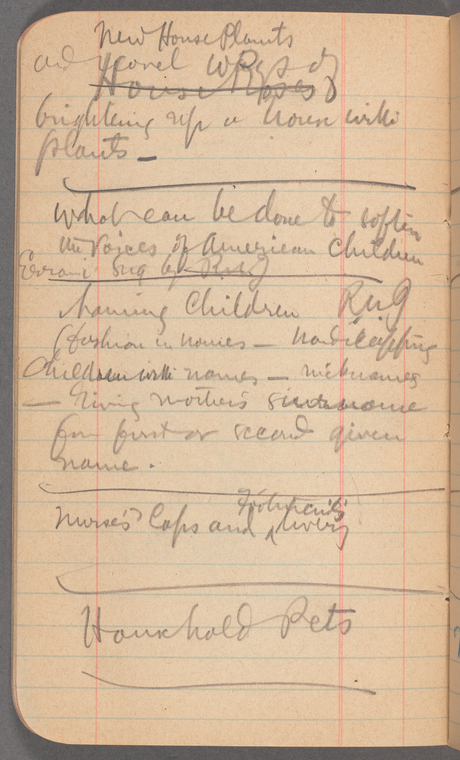 New House Plants
and novel ways of
House Roses
brightening up a house with
plants —
What can be done to soften
the Voices of American Children
sug by
Naming Children
(fashion in names — handicapping
Children with names — nicknames
— Giving mother's surname
for first or second given
name.
Nurse's Caps and
Household Pets